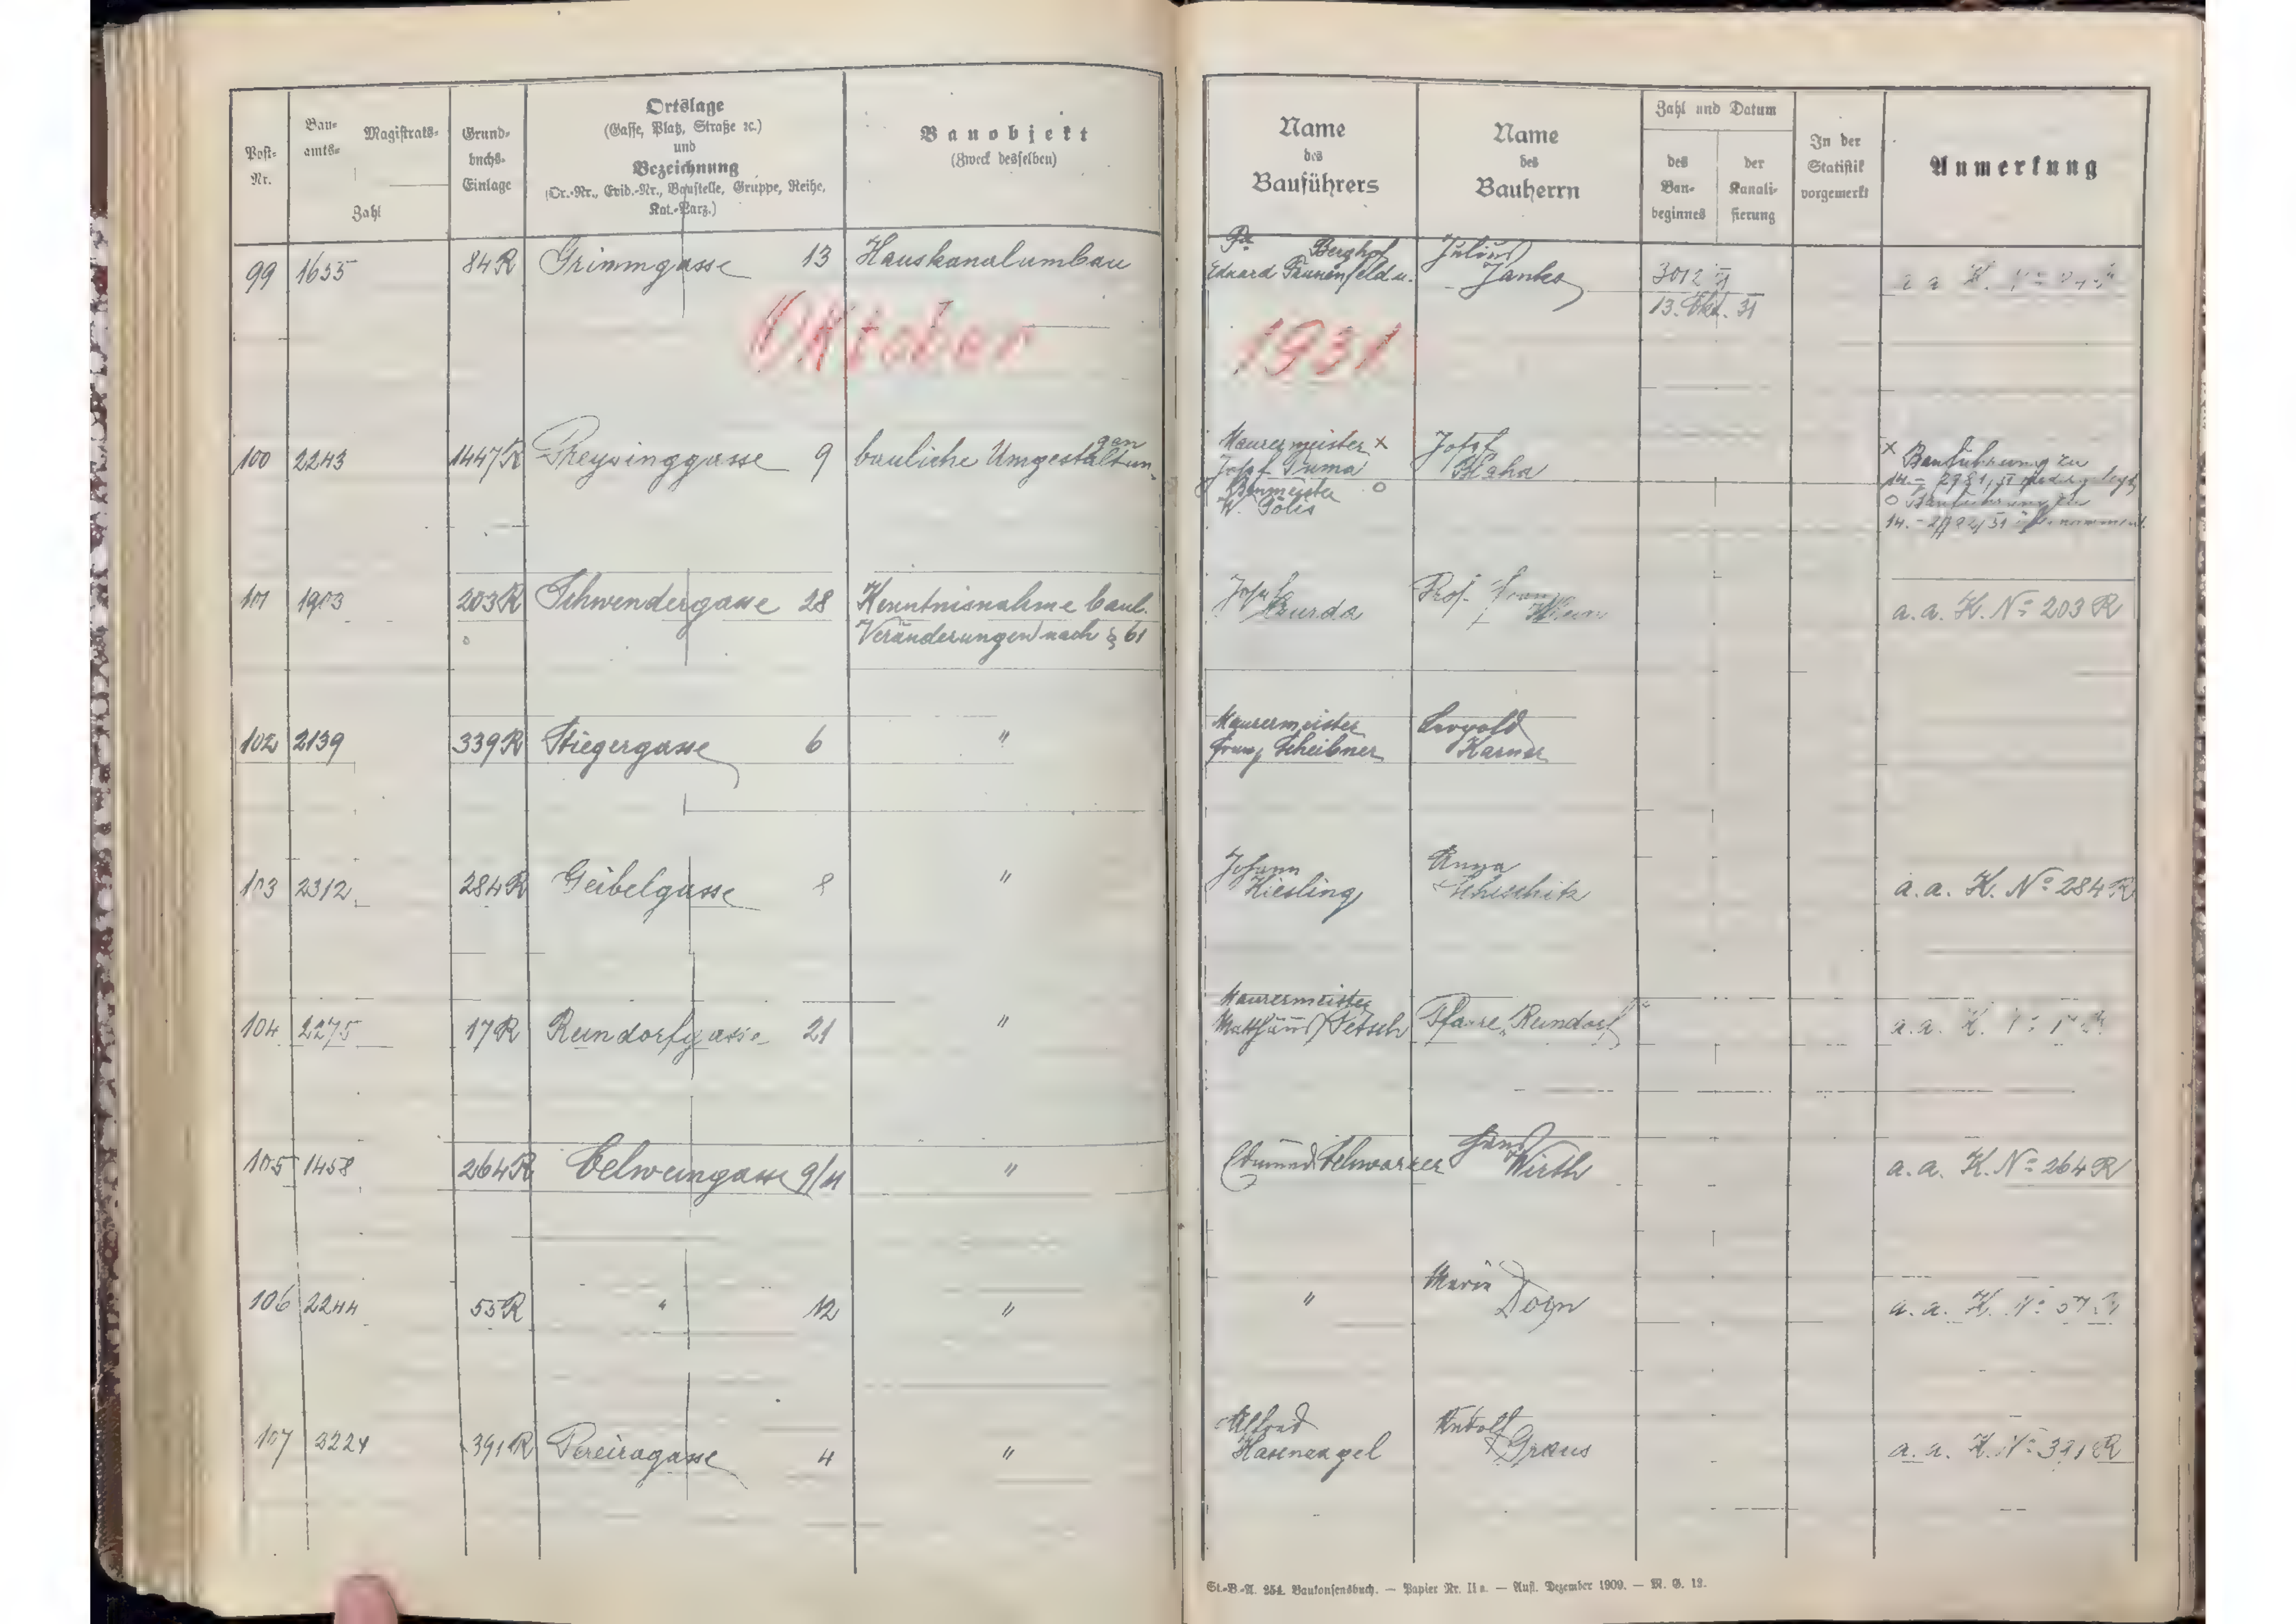 Post-
Nr.
Bau-
amts-
Magistrats-
Zahl
Grund-
buchs-
Einlage
Ortslage
(Gasse, Platz, Straße ꝛc.)
und
Bezeichnung
(Or.-Nr., Evid.-Nr., Baustelle, Gruppe, Reihe,
Kat.-Parz.)
Bauobjekt
(Zweck desselben)
Name
des
Bauführers
Name
des
Bauherrn
Zahl und Datum
des
Bau-
beginnes
der
Kanali-
sierung
In der
Statistik
vorgemerkt
Anmerkung
99 1655 84R Grimmgasse 13 Hauskanalumbau
Berghof
Eduard Tannenfeld u.
Julius
Janko
3012
13. Okt. 31
a a K.
Oktober 1931
100 2243 1447R Preysinggasse 9 bauliche Umgestaltun-
gen
Maurermeister ×
Josef Tuma
Baumeister ○
Josef
Blaha
× Bauführung zu
○ Bauführung zu
101 1903 203R Schwendergasse 28 Kenntnisnahme baul.
Veränderungen nach § 61
Josef
Prof.
a.a. K. No 203 R
102 2139 339R Stiegergasse 6 "
Maurermeister
Franz Scheibner
Leopold
Karner
103 2312 284R Geibelgasse 8 "
Johann
Kiesling
Anna
a.a. K. No 284 R
104 2275 17R Reindorfgasse 21 "
Maurermeister
Matthäus Petsch
Pfarre Reindorf
a.a. K.
105 1458 264R Oelweingasse 9/11 "
Edmund Schwarzer
Hans
Wirth
a.a. K. No 264 R
106 2244 55R " 12 "
"
Maria
Dorn
a.a. K.
107 2224 391R Pereiragasse 4 "
Alfred
Hasenagel
Rudolf
Graus
a.a. K. No 391 R
St.-B.-A. 254. Baukonsensbuch. — Papier Nr. II a. — Aufl. Dezember 1909. — M. G. 12.